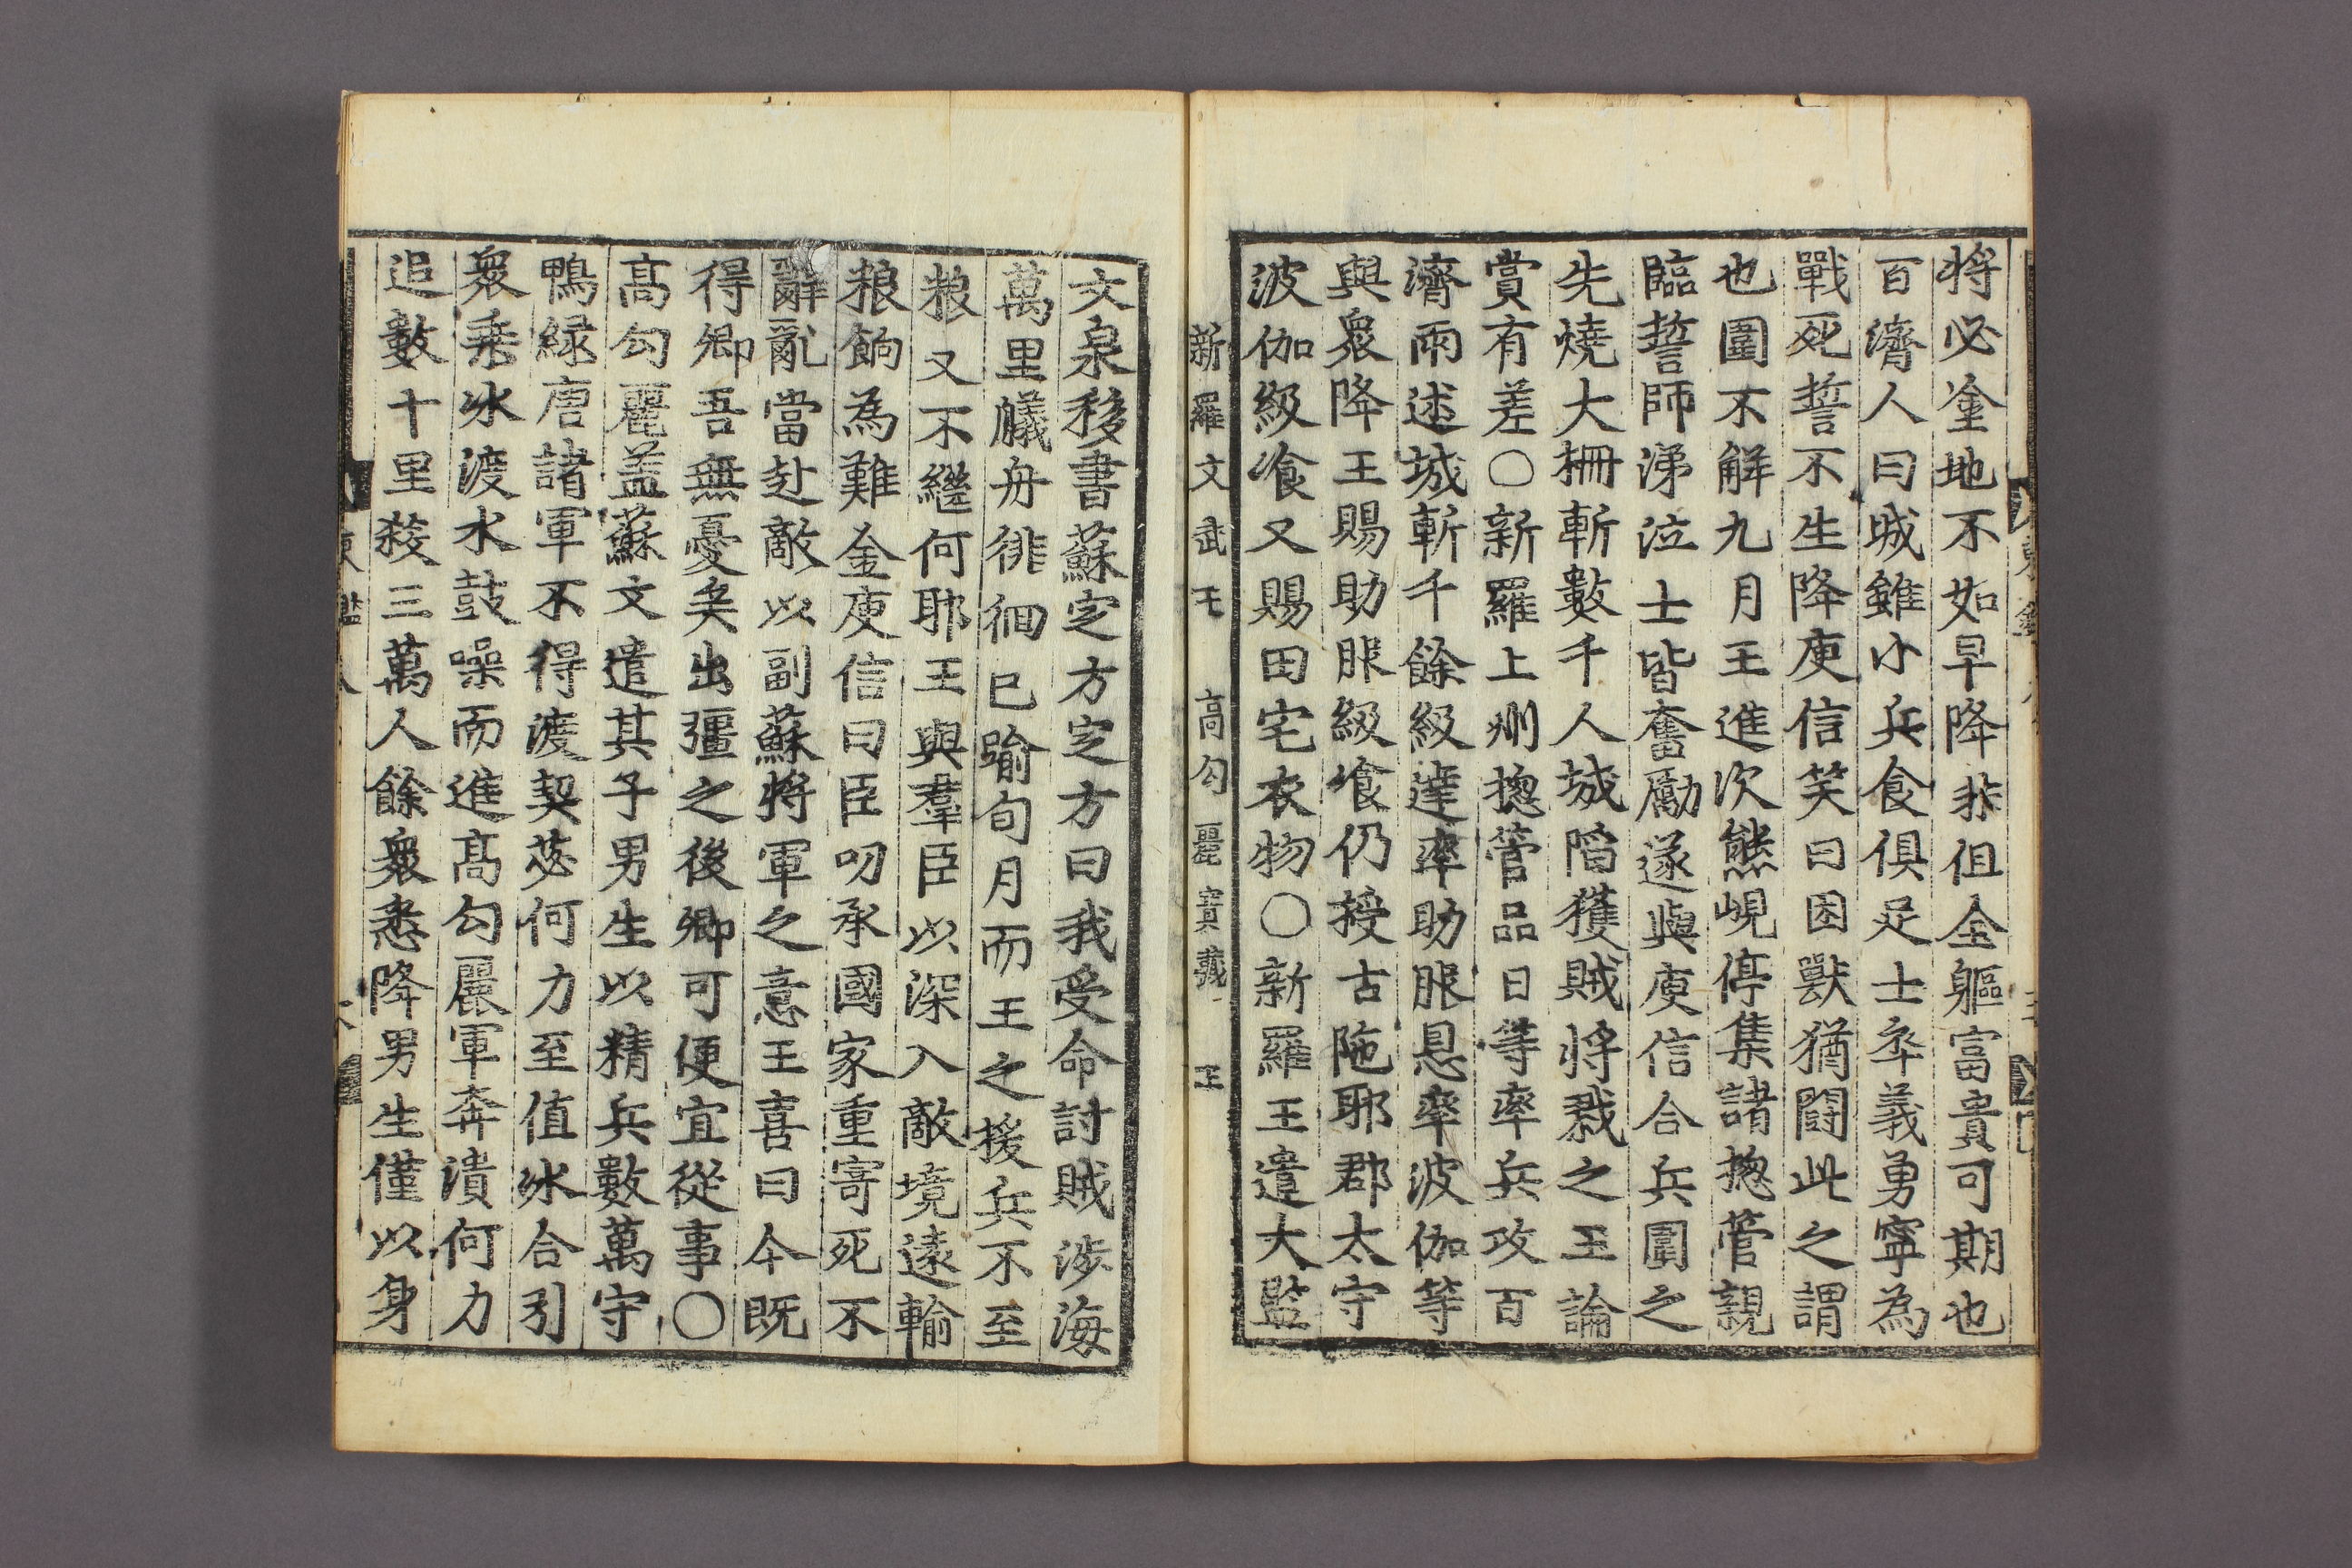 將必塗地不如早降非但全軀富貴可期也
百濟人曰城雖小兵食俱足士卒義勇寧爲
戰死誓不生降庾信笑曰困獸猶鬪此之謂
也圍不解九月王進次熊峴停集諸摠管親
臨誓師涕泣士皆奮勵遂與庾信合兵圍之
先燒大柵斬數千人城陷獲賊將戮之王論
賞有差○新羅上州摠管品日等率兵攻百
濟雨述城斬千餘級達率助服恩率波伽等
與衆降王賜助服級飡仍授古陁耶郡太守
波伽級飡又賜田宅衣物○新羅王遣大監
新羅文武王 高句麗寶藏王
文泉移書蘇定方定方曰我受命討賊涉海
萬里艤舟徘徊已踰旬月而王之援兵不至
粮又不繼何耶王與羣臣以深入敵境遠輸
粮餉爲難金庾信曰臣叨承國家重寄死不
辭亂當赴敵以副蘇將軍之意王喜曰今旣
得卿吾無憂矣出彊之後卿可便宜從事○
高勾麗盖蘇文遣其子男生以精兵數萬守
鴨綠唐諸軍不得渡契苾何力至值氷合引
衆乘氷渡水鼓噪而進高勾麗軍奔潰何力
追數十里殺三萬人餘衆悉降男生僅以身